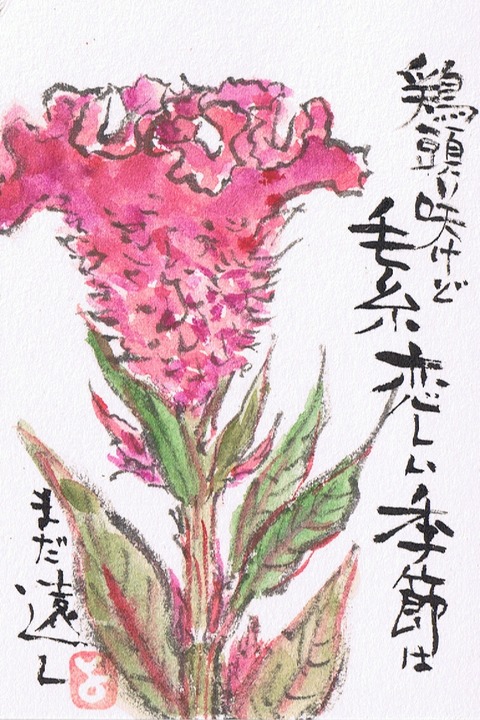 鶏頭は咲けど
毛糸恋しい季節は
まだ遠し